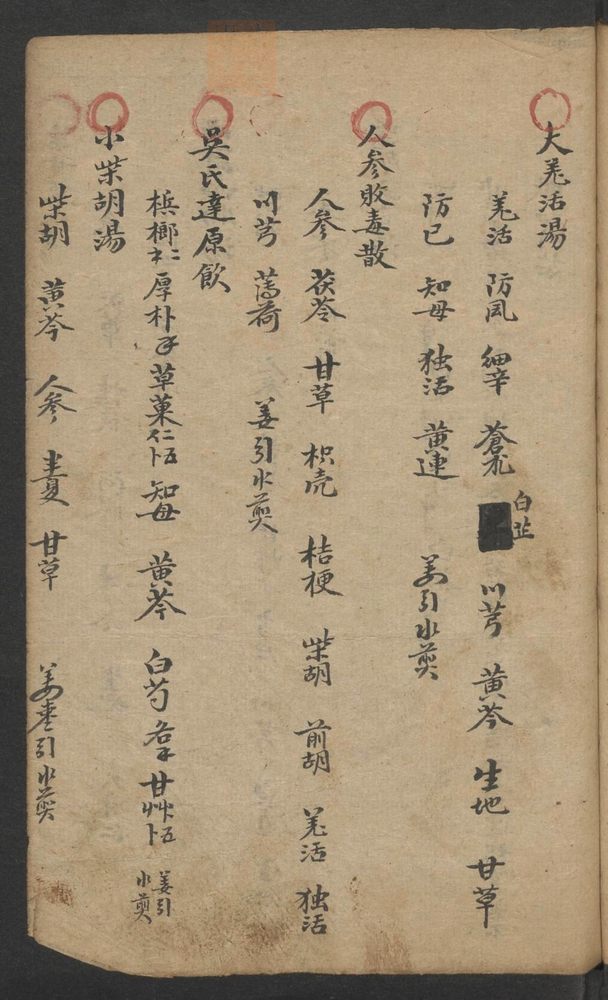 大羌活湯
羌活 防風 細辛 蒼朮 白芷 川芎 黄芩 生地 甘草
防已 知母 独活 黄連 姜引水煎
人参敗毒散
人参 茯苓 甘草 枳壳 桔梗 柴胡 前胡 羌活 独活
川芎 薄荷 姜引水煎
吴氏達原飲
槟榔 厚朴 草菓仁 知母 黄芩 白芍 甘艸 姜引水煎
小柴胡湯
柴胡 黄芩 人参 半夏 甘草 姜枣引水煎